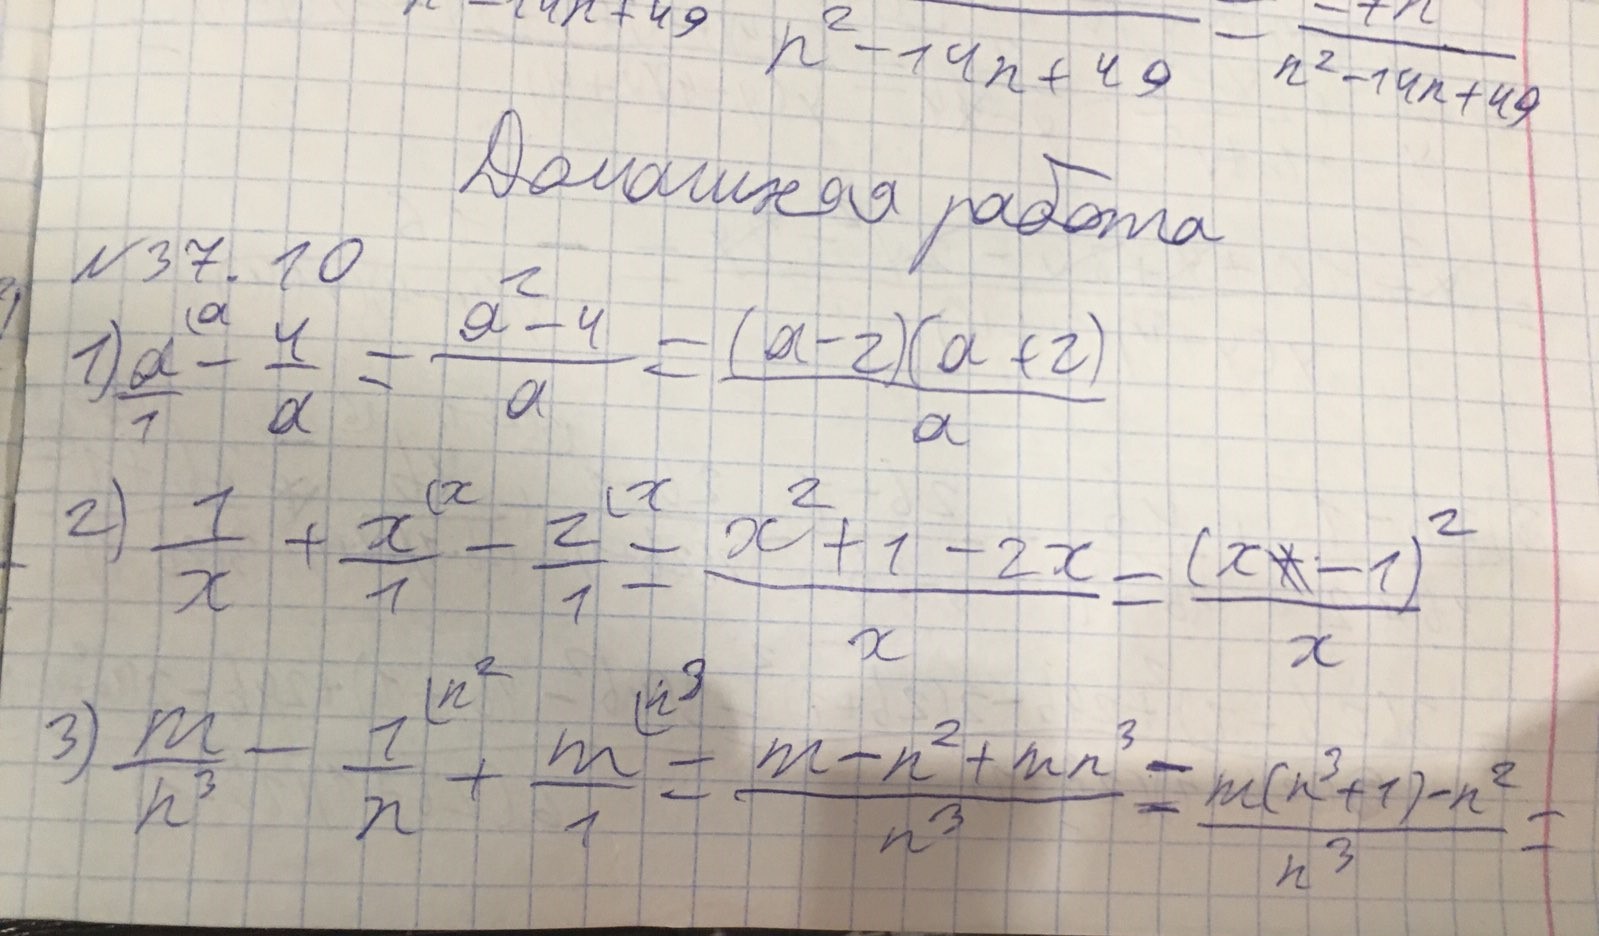 n² - 14n + 49   n² - 14n + 49 = -7n / n² - 14n + 49
Домашняя работа
№37.10
1) a/1 (a - 4/a = (a² - 4)/a = (a-2)(a+2)/a
2) 1/x + x/1 (x - 2/1 (x = (x² + 1 - 2x)/x = (x - 1)²/x
3) m/n³ - 1/n (n² + m/1 (n³ = (m - n² + mn³)/n³ = (m(n³+1) - n²)/n³ =